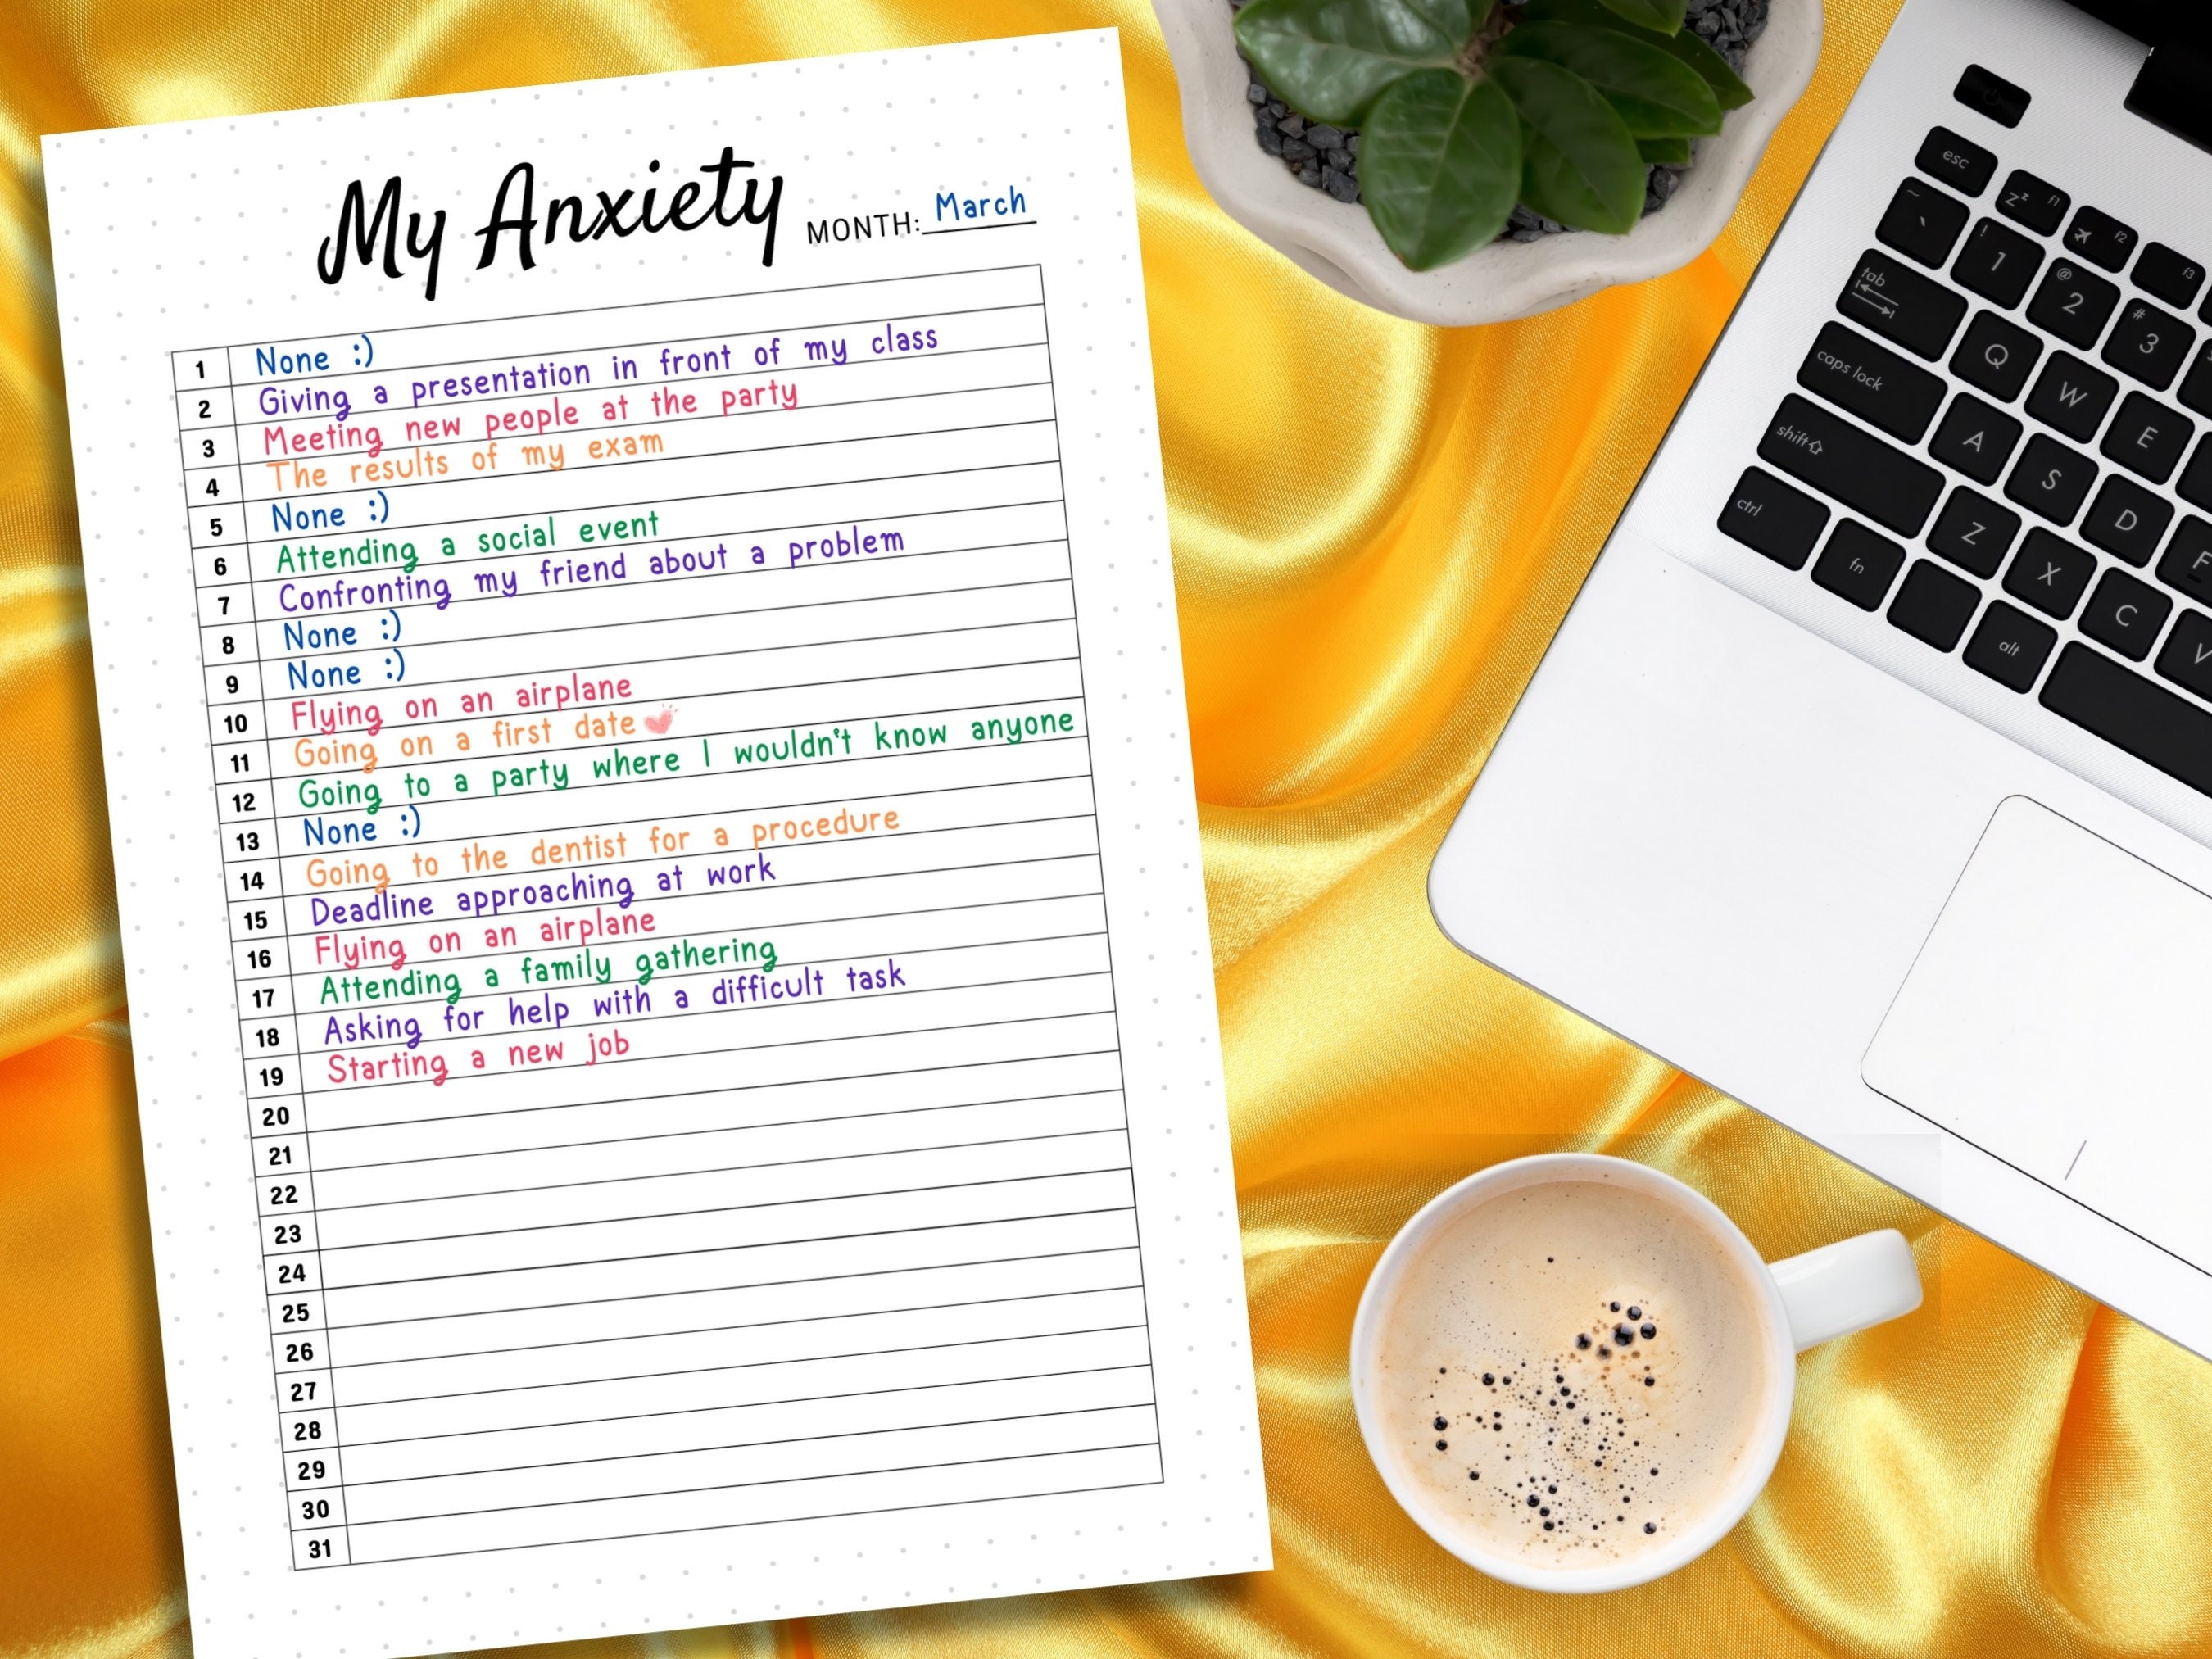 My Anxiety MONTH: March
1 None :)
2 Giving a presentation in front of my class
3 Meeting new people at the party
4 The results of my exam
5 None :)
6 Attending a social event
7 Confronting my friend about a problem
8 None :)
9 None :)
10 Flying on an airplane
11 Going on a first date
12 Going to a party where I wouldn't know anyone
13 None :)
14 Going to the dentist for a procedure
15 Deadline approaching at work
16 Flying on an airplane
17 Attending a family gathering
18 Asking for help with a difficult task
19 Starting a new job
20
21
22
23
24
25
26
27
28
29
30
31
esc zzz f1 f2 f3
~ ` ! 1 @ 2 # 3
tab Q W E
caps lock A S D F
shift Z X C V
ctrl fn alt